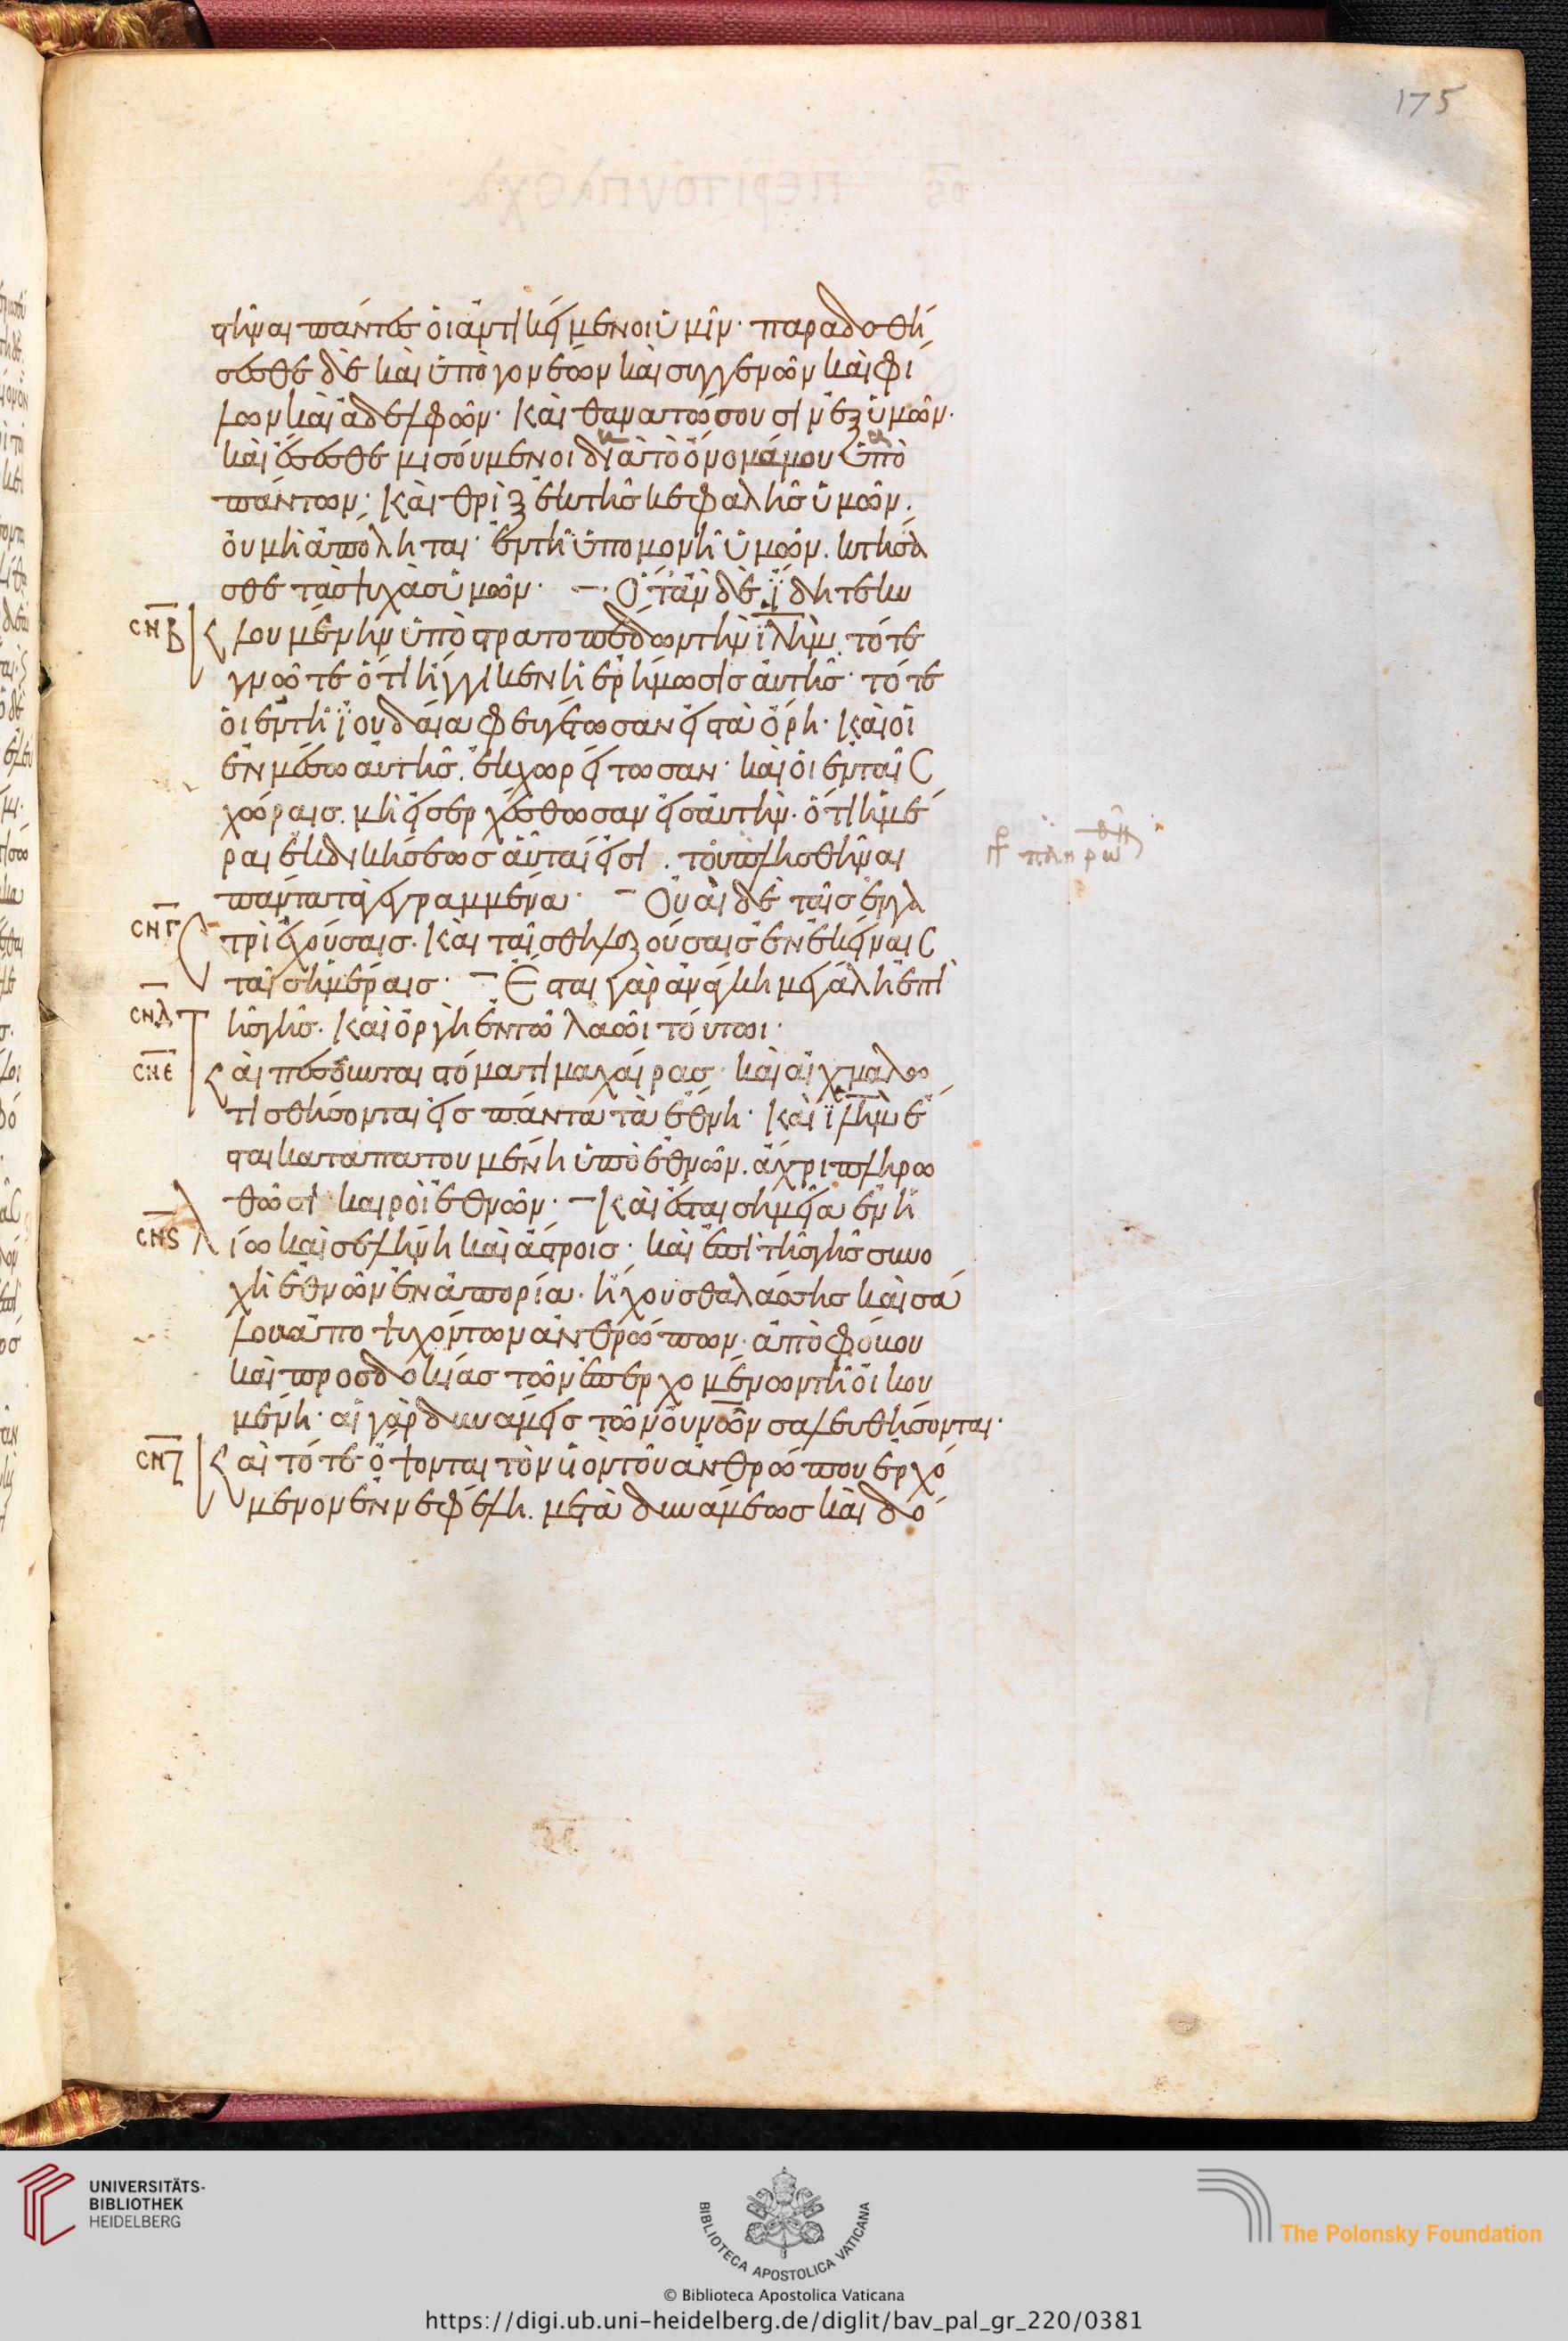 στῆναι πάντες οἱ ἀντικείμενοι ὑμῖν· παραδοθή
σεσθε δὲ καὶ ὑπὸ γονέων καὶ συγγενῶν καὶ φί
λων καὶ ἀδελφῶν· καὶ θανατώσουσιν ἐξ ὑμῶν·
καὶ ἔσεσθε μισούμενοι διὰ τὸ ὄνομά μου ὑπὸ
πάντων· καὶ θρὶξ ἐκ τῆς κεφαλῆς ὑμῶν.
οὐ μὴ ἀπόληται· ἐν τῇ ὑπομονῇ ὑμῶν. κτήσα
σθε τὰς ψυχὰς ὑμῶν· – Ὅταν δὲ ἴδητε κυ
σνβ κλουμένην ὑπὸ στρατοπέδων τὴν ἰλημ. τότε
γνῶτε ὅτι ἤγγικεν ἡ ἐρήμωσις αὐτῆς· τότε
οἱ ἐν τῆ ἰουδαία φευγέτωσαν εἰς τὰ ὄρη· καὶ οἱ
ἐν μέσω αὐτῆς. ἐκχωρείτωσαν· καὶ οἱ ἐν ταῖς
χώραις. μὴ εἰσερχέσθωσαν εἰς αὐτήν· ὅτι ἡμέ
ραι ἐκδικήσεως αὗταί εἰσι. τοῦ πλησθῆναι
πάντα τὰ γεγραμμένα· – Οὐαὶ δὲ ταῖς ἐν γα
σνγ στρὶ ἐχούσαις. καὶ ταῖς θηλαζούσαις ἐν ἐκείναις
ταῖς ἡμέραις· – Ἔσται γὰρ ἀνάγκη μεγάλη ἐπὶ
σνδ τῆς γῆς. καὶ ὀργὴ ἐν τῶ λαῶι τούτωι·
σνε καὶ πεσοῦνται στόματι μαχαίρας· καὶ αἰχμαλω
τισθήσονται εἰς πάντα τὰ ἔθνη· καὶ ἰλημ ἔ
σται καταπατουμένη ὑπὸ ἐθνῶν. ἄχρι πληρω
θῶσι καιροὶ ἐθνῶν· – καὶ ἔσται σημεῖα ἐν ἡ
σνς λίω καὶ σελήνη καὶ ἄστροις· καὶ ἐπὶ τῆς γῆς συνο
χὴ ἐθνῶν ἐν ἀπορία· ἤχους θαλάσσης καὶ σά
λου ἀποψυχόντων ἀνθρώπων· ἀπὸ φόβου
καὶ προσδοκίας τῶν ἐπερχομένων τῆ οἰκου
μένη· αἱ γὰρ δυνάμεις τῶν οὐνῶν σαλευθήσονται·
σνζ καὶ τότε ὄψονται τὸν υἱὸν τοῦ ἀνθρώπου ἐρχό
μενον ἐν νεφέλη. μετὰ δυνάμεως καὶ δό
γρ πληρωθῆν
175
UNIVERSITÄTS-
BIBLIOTHEK
HEIDELBERG
BIBLIOTECA APOSTOLICA VATICANA
The Polonsky Foundation
© Biblioteca Apostolica Vaticana
https://digi.ub.uni-heidelberg.de/diglit/bav_pal_gr_220/0381